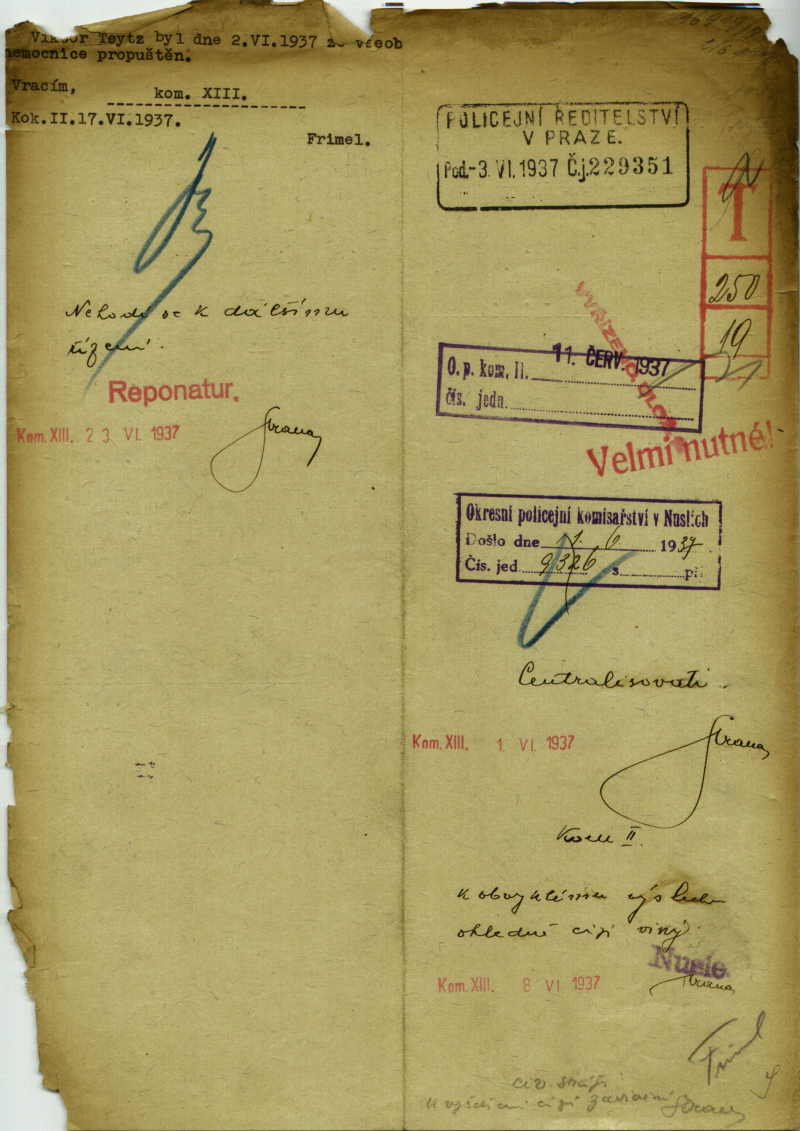 Viktor Teytz byl dne 2.VI.1937 ze všeob
nemocnice propuštěn.
Vracím,
kom. XIII.
Kok.II.17.VI.1937.
Frimel.
Nehodí se k dalšímu
řízení.
Reponatur.
Kom. XIII. 23. VI. 1937
POLICEJNÍ ŘEDITELSTVÍ
V PRAZE.
Pod.-3. VI. 1937 Č.j. 229351
T
250
19
VYŘÍZENO
O. p. kom. II. 11. ČERV. 1937
čís. jedn.
Velmi nutné!
Okresní policejní komisařství v Nuslích
Došlo dne 1. 6. 1937
Čís. jed. 9326 s př.
Centralisovati.
Kom. XIII. 1. VI. 1937
Kom II.
k obvyklému výslechu
ohledně cizí viny.
Nusle.
Kom. XIII. 8 VI 1937